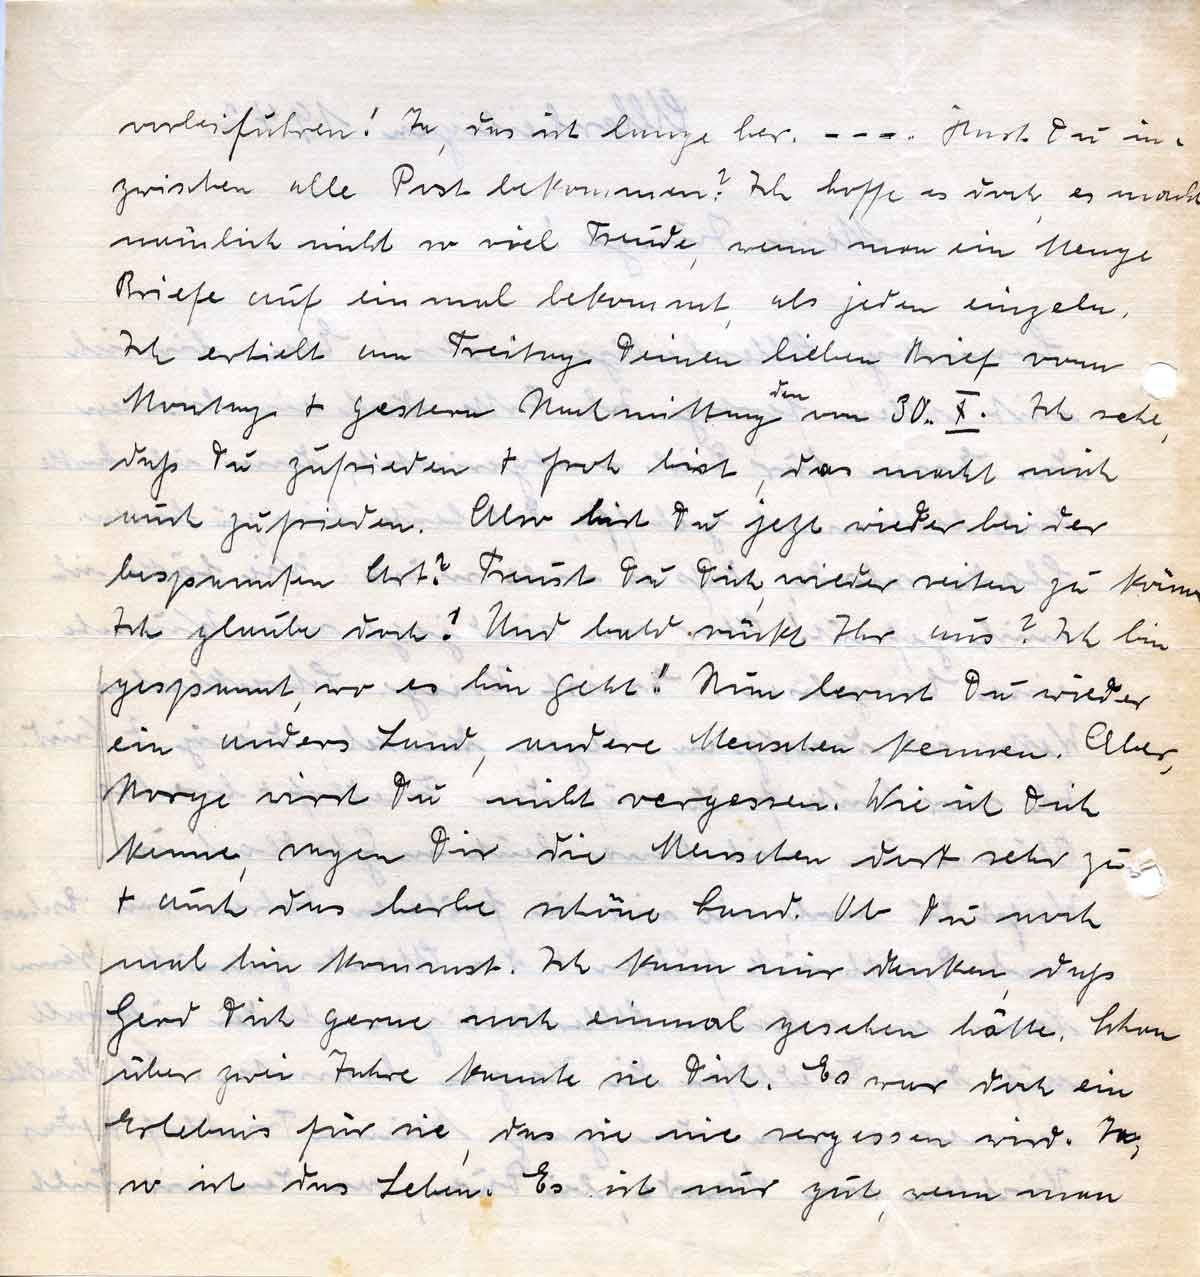 vorbeiführen! Ja, das ist lange her. ---. Hast Du in-
zwischen alle Post bekommen? Ich hoffe es doch, es macht
nämlich nicht so viel Freude, wenn man ein Menge
Briefe auf einmal bekommt, als jeden einzeln.
Ich erhielt am Freitag Deinen lieben Brief vom
Montag + gestern Nachmittag den vom 30. X. Ich sehe,
daß Du zufrieden + froh bist, das macht mich
auch zufrieden. Also bist Du jetzt wieder bei der
bespannten Art? Freust Du Dich, wieder reiten zu könn
Ich glaube doch! Und bald rückt Ihr aus? Ich bin
gespannt, wo es hin geht! Nun lernst Du wieder
ein anders Land, andere Menschen kennen. Aber,
Norge wirst Du nicht vergessen. Wie ich Dich
kenne, sagen Dir die Menschen dort sehr zu
+ auch das herbe schöne Land. Ob Du noch
mal hin kommst. Ich kann mir denken, daß
Gerd Dich gerne noch einmal gesehen hätte. Schon
über zwei Jahre kannte sie Dich. Es war doch ein
Erlebnis für sie, das sie nie vergessen wird. Ja,
so ist das Leben. Es ist nur gut, wenn man